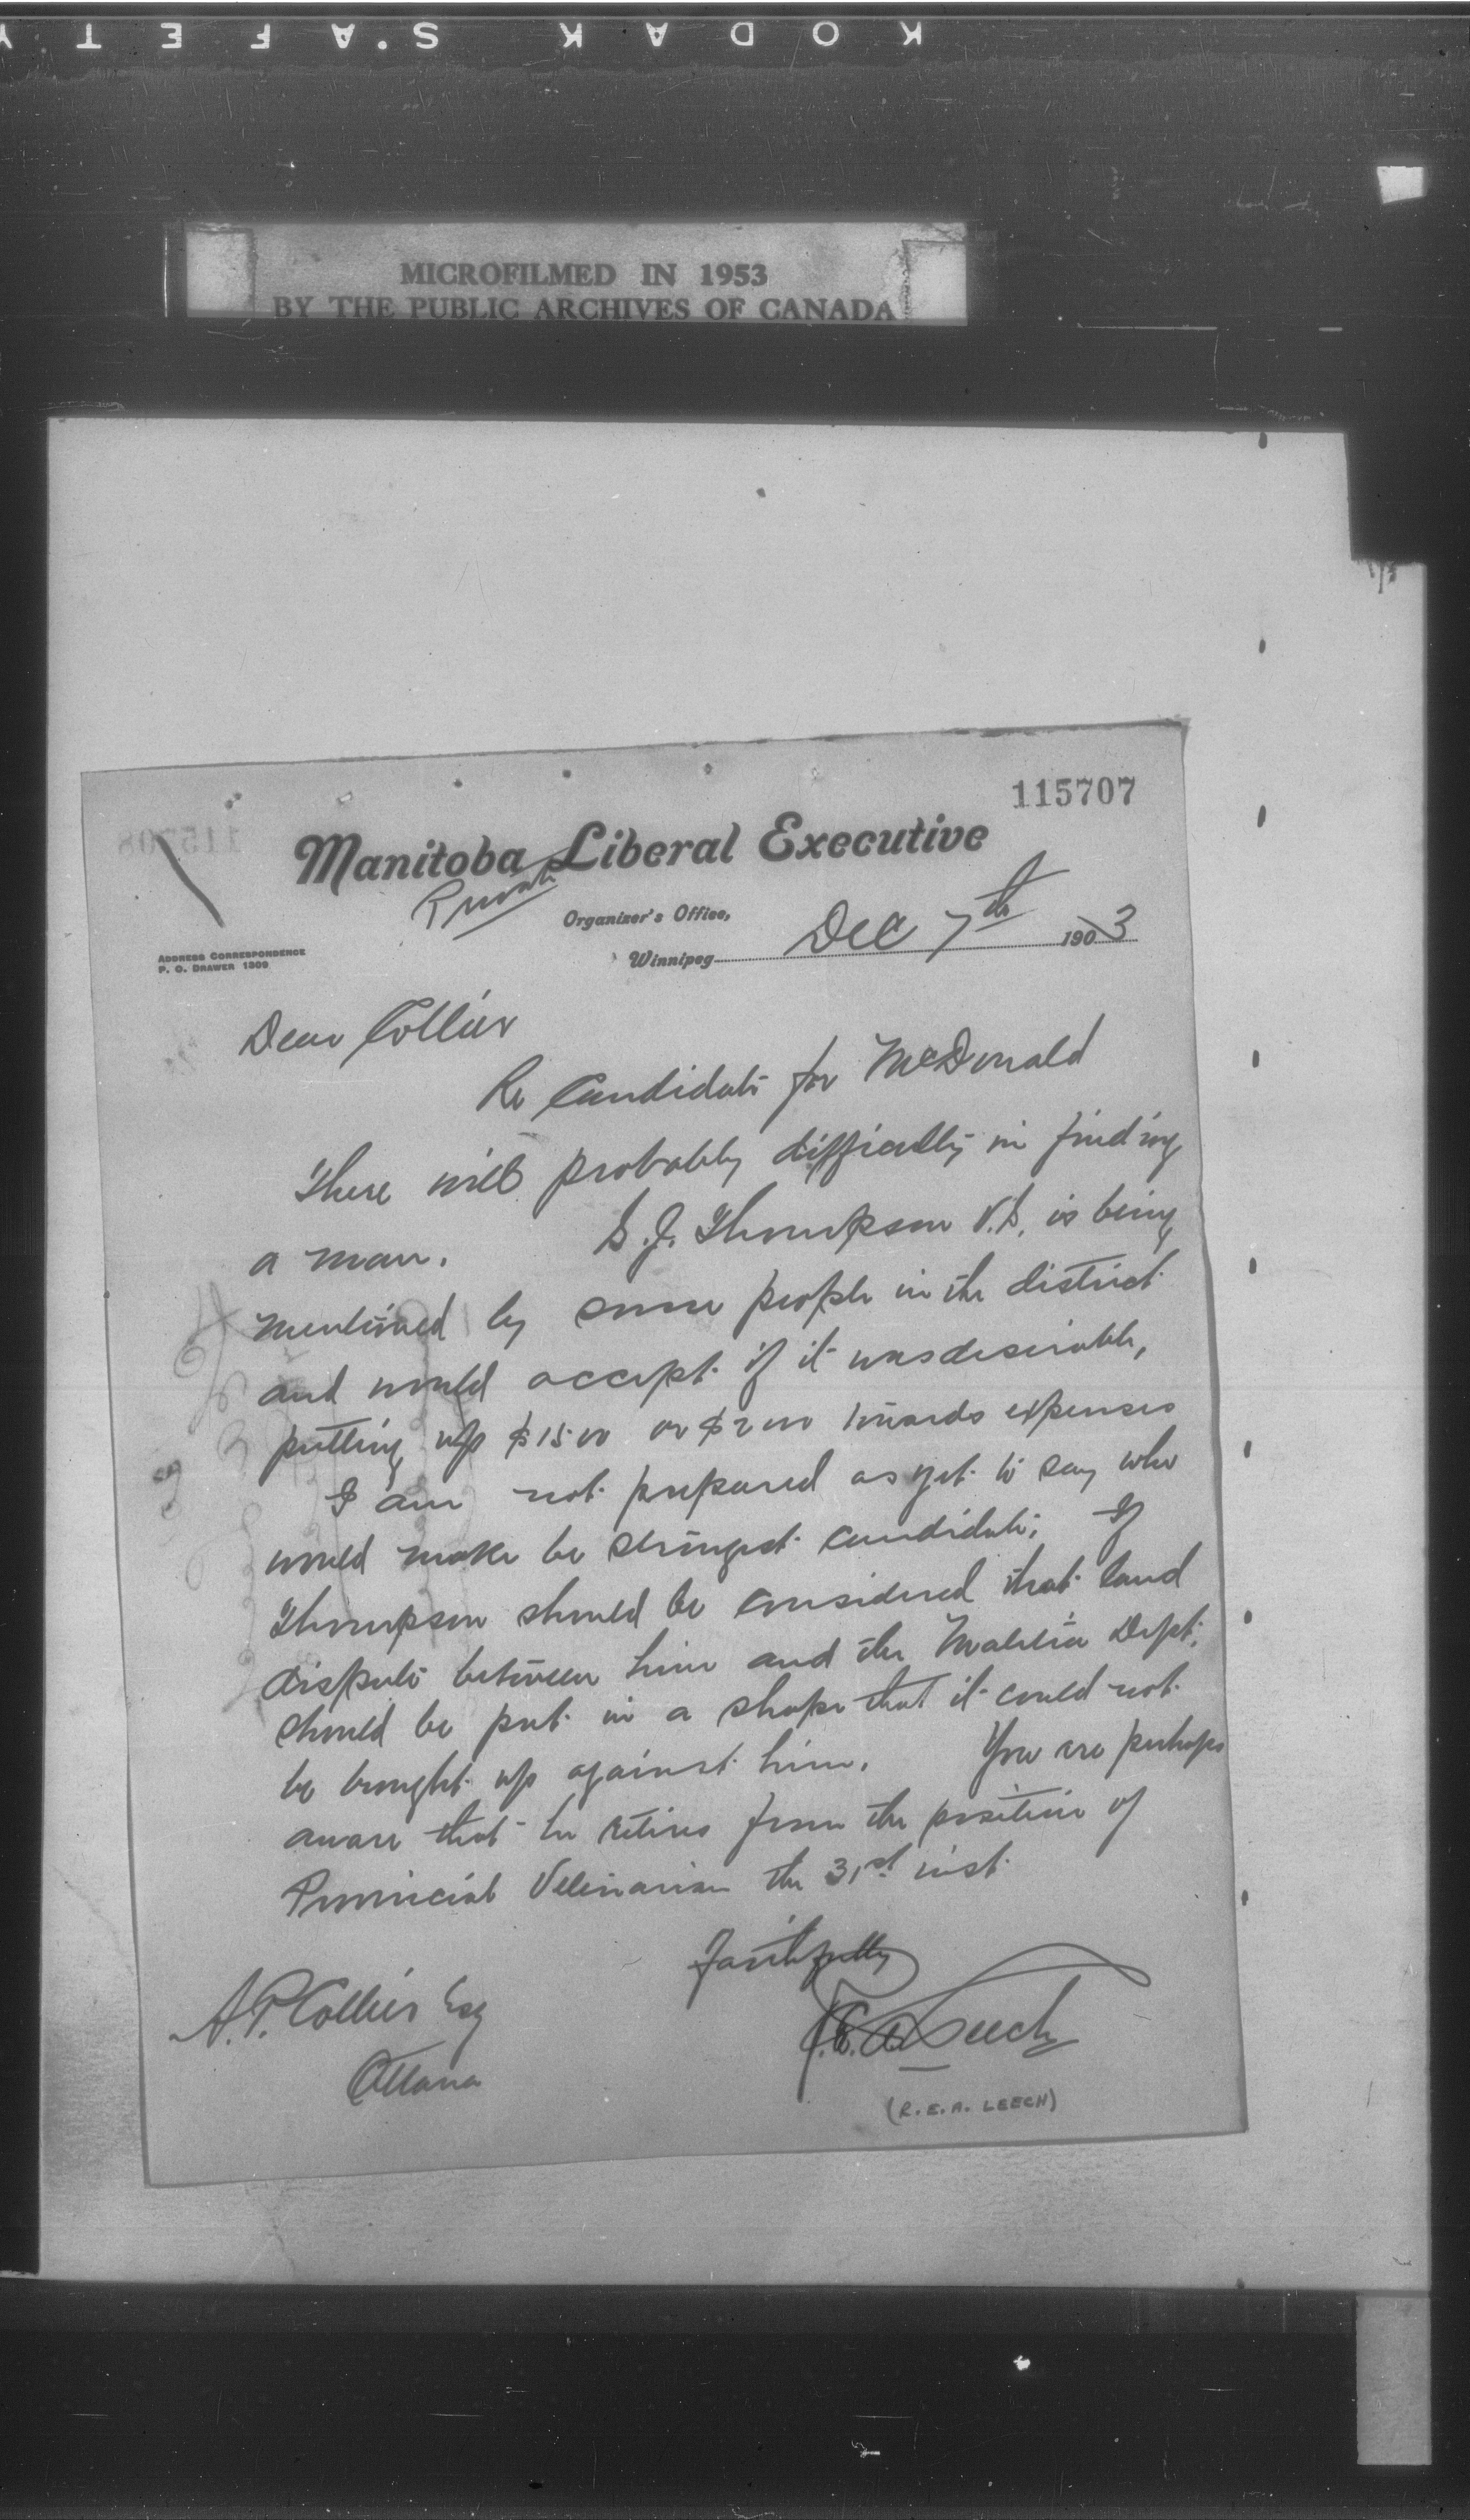 KODAK S'AFETY
MICROFILMED IN 1953
BY THE PUBLIC ARCHIVES OF CANADA
115707
Manitoba Liberal Executive
Private
Organizer's Office,
Winnipeg Dec 7th 1903
ADDRESS CORRESPONDENCE
P. O. DRAWER 1309
Dear Collier
Re Candidate for McDonald
There will probably difficulty in finding
a man. S. J. Thompson V.S. is being
mentioned by some people in the district
and would accept if it was desirable,
putting up $1500 or $2000 towards expenses
I am not prepared as yet to say who
would make be strongest candidate; If
Thompson should be considered that land
dispute between him and the Malitia Dept.
should be put in a shape that it could not
be brought up against him. You are perhaps
aware that he retires from the position of
Provincial Veterinarian the 31st inst.
Faithfully
R.E.A. Leech
(R.E.A. LEECH)
A.P. Collier Esq
Ottawa